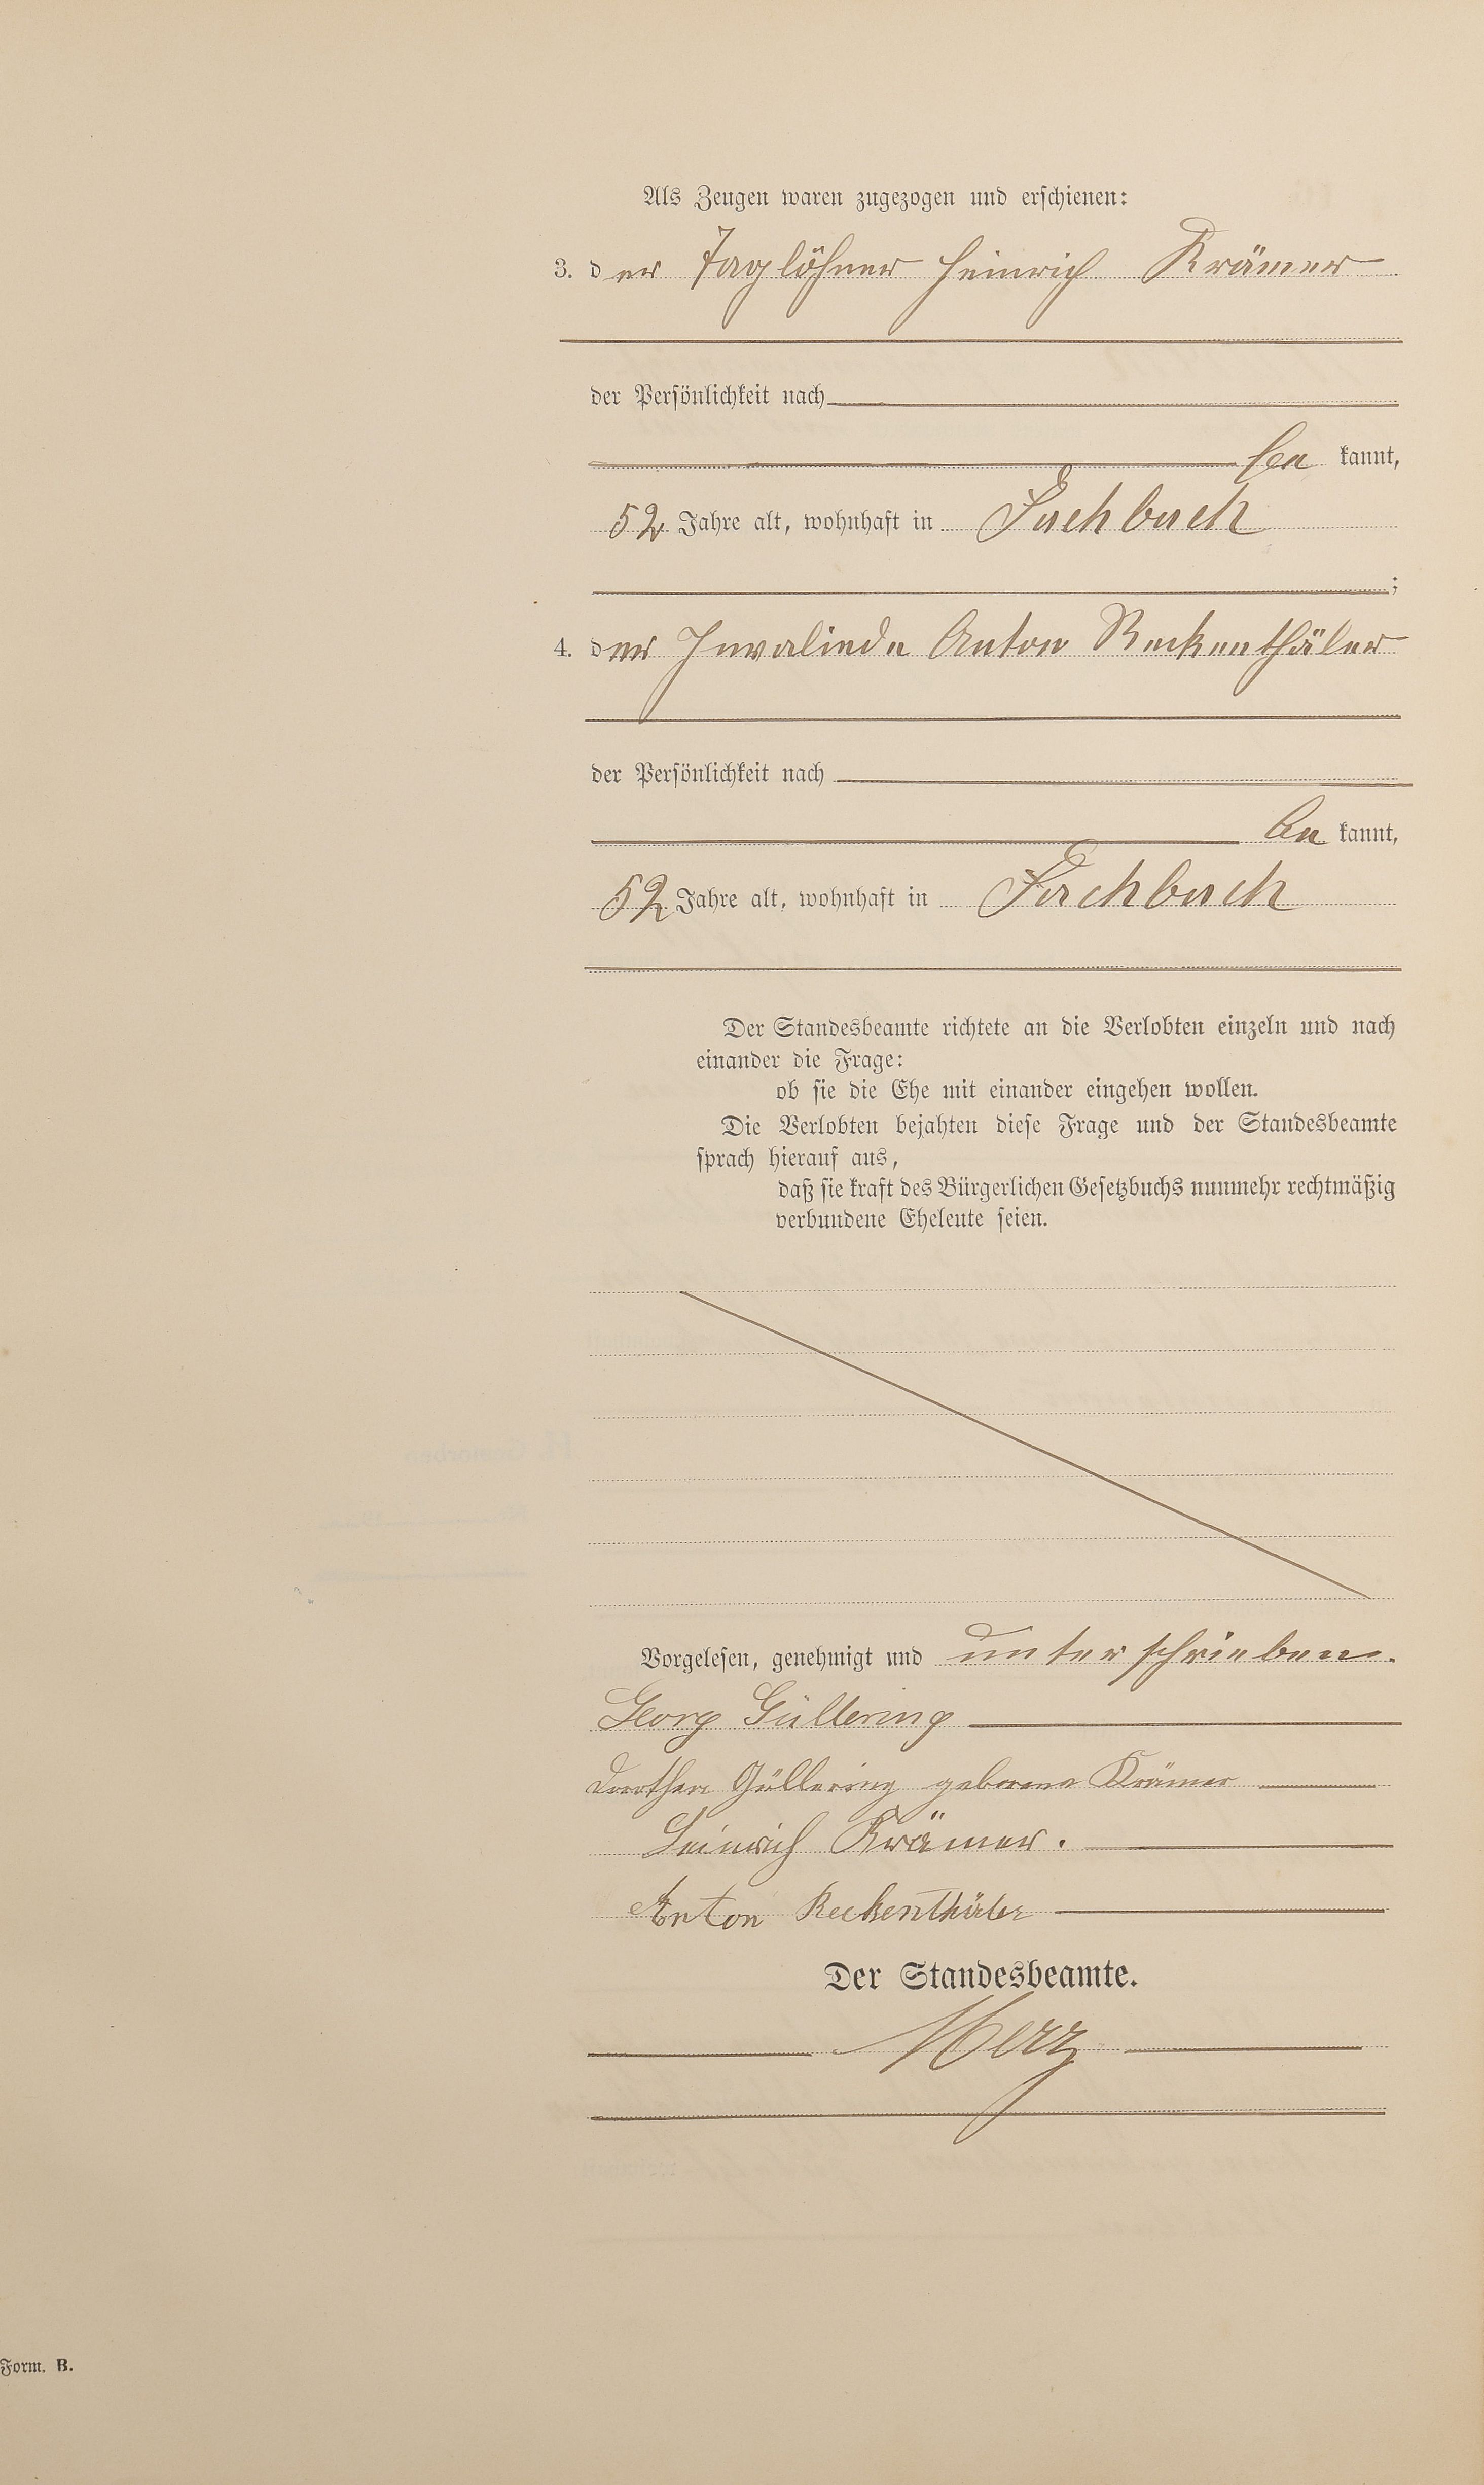 Als Zeugen waren zugezogen und erschienen:
3. der Taglöhner Heinrich Krämer
der Persönlichkeit nach
be kannt,
52 Jahre alt, wohnhaft in Fachbach
;
4. der Invaliede Anton Reckenthäler
der Persönlichkeit nach
be kannt,
52 Jahre alt, wohnhaft in Fachbach
Der Standesbeamte richtete an die Verlobten einzeln und nach
einander die Frage:
ob sie die Ehe mit einander eingehen wollen.
Die Verlobten bejahten diese Frage und der Standesbeamte
sprach hierauf aus,
daß sie kraft des Bürgerlichen Gesetzbuchs nunmehr rechtmäßig
verbundene Eheleute seien.
Vorgelesen, genehmigt und unterschrieben.
Georg Güllering
Dorothea Güllering geborene Krämer
Heinrich Krämer.
Anton Reckenthäler
Der Standesbeamte.
Merz
Form. B.